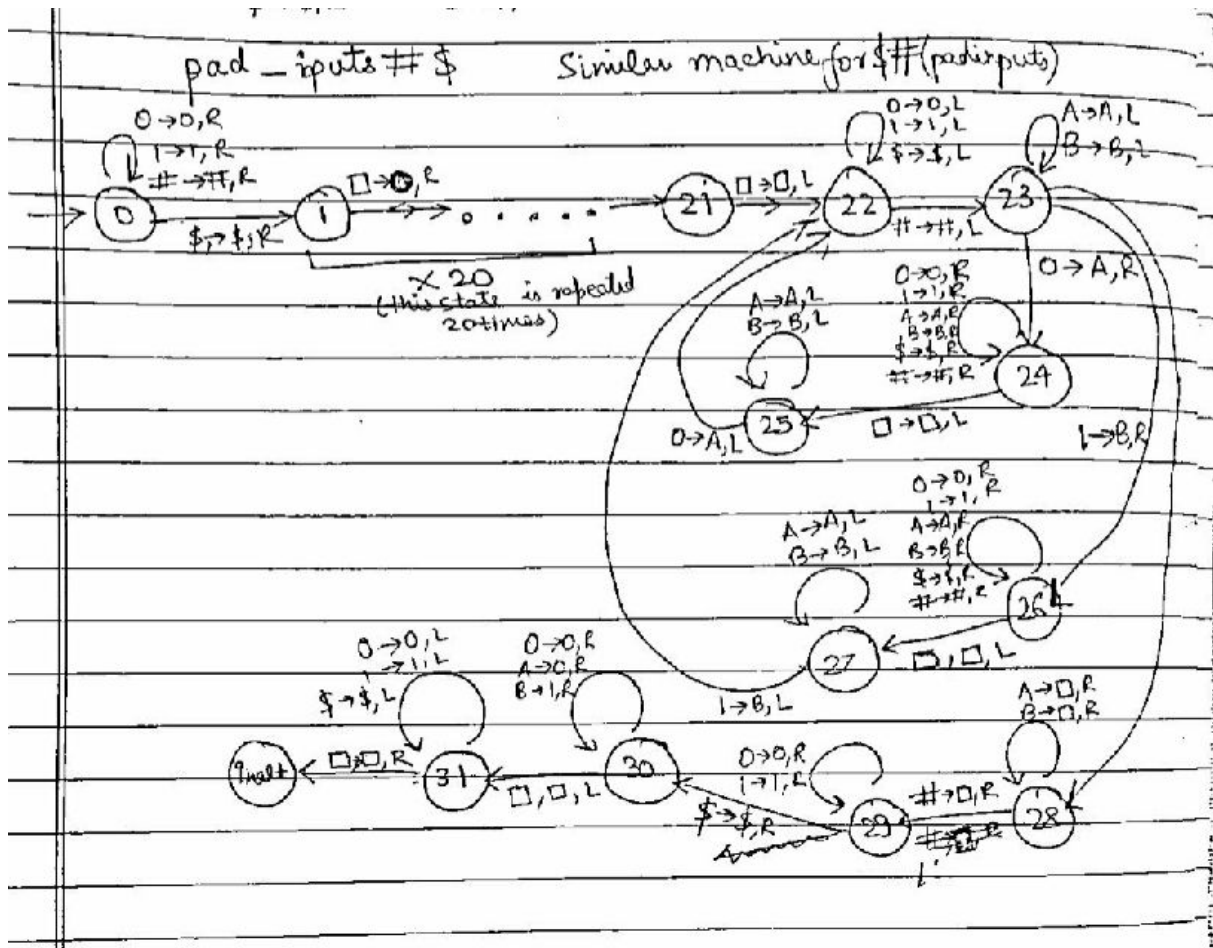 pad_iputs#$
Similar machine for $#(padinputs)
0→0,R
1→1,R
#→#,R
0
$→$,R
1
□→0,R
x 20
(this state is repeated
20times)
21
□→□,L
0→0,L
1→1,L
$→$,L
22
#→#,L
A→A,L
B→B,L
23
0→A,R
0→0,R
1→1,R
A→A,R
B→B,R
$→$,R
#→#,R
24
□→□,L
A→A,L
B→B,L
25
0→A,L
1→B,R
0→0,R
1→1,R
A→A,R
B→B,R
$→$,R
#→#,R
26
□,□,L
A→A,L
B→B,L
27
1→B,L
A→□,R
B→□,R
28
#→□,R
0→0,R
1→1,R
29
$→$,R
0→0,R
A→0,R
B→1,R
30
□,□,L
0→0,L
1→1,L
$→$,L
31
□→□,R
qhalt